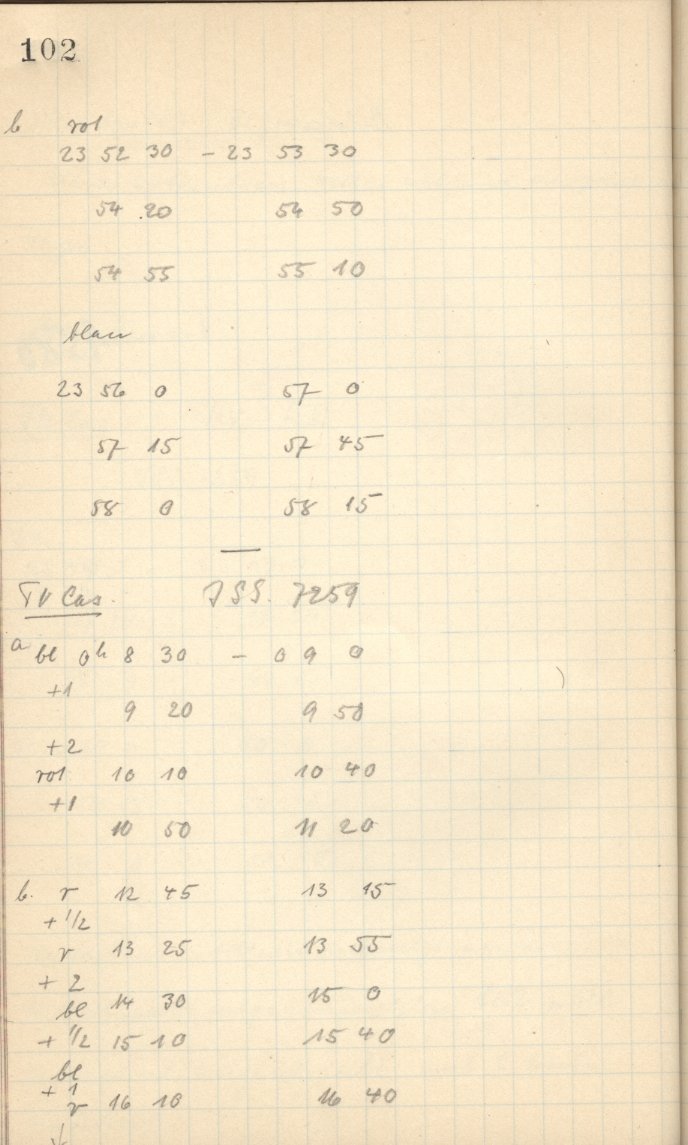 102
b rot
23 52 30 – 23 53 30
54 20 54 50
54 55 55 10
blau
23 56 0 57 0
57 15 57 45
58 0 58 15
—
TV Cas. 7259
a bl 0h 8 30 – 0 9 0
+1
9 20 9 50
+2
rot 10 10 10 40
+1
10 50 11 20
b. r 12 45 13 15
+ 1/2
r 13 25 13 55
+ 2
bl 14 30 15 0
+ 1/2 15 10 15 40
bl
+ 1
r 16 10 16 40